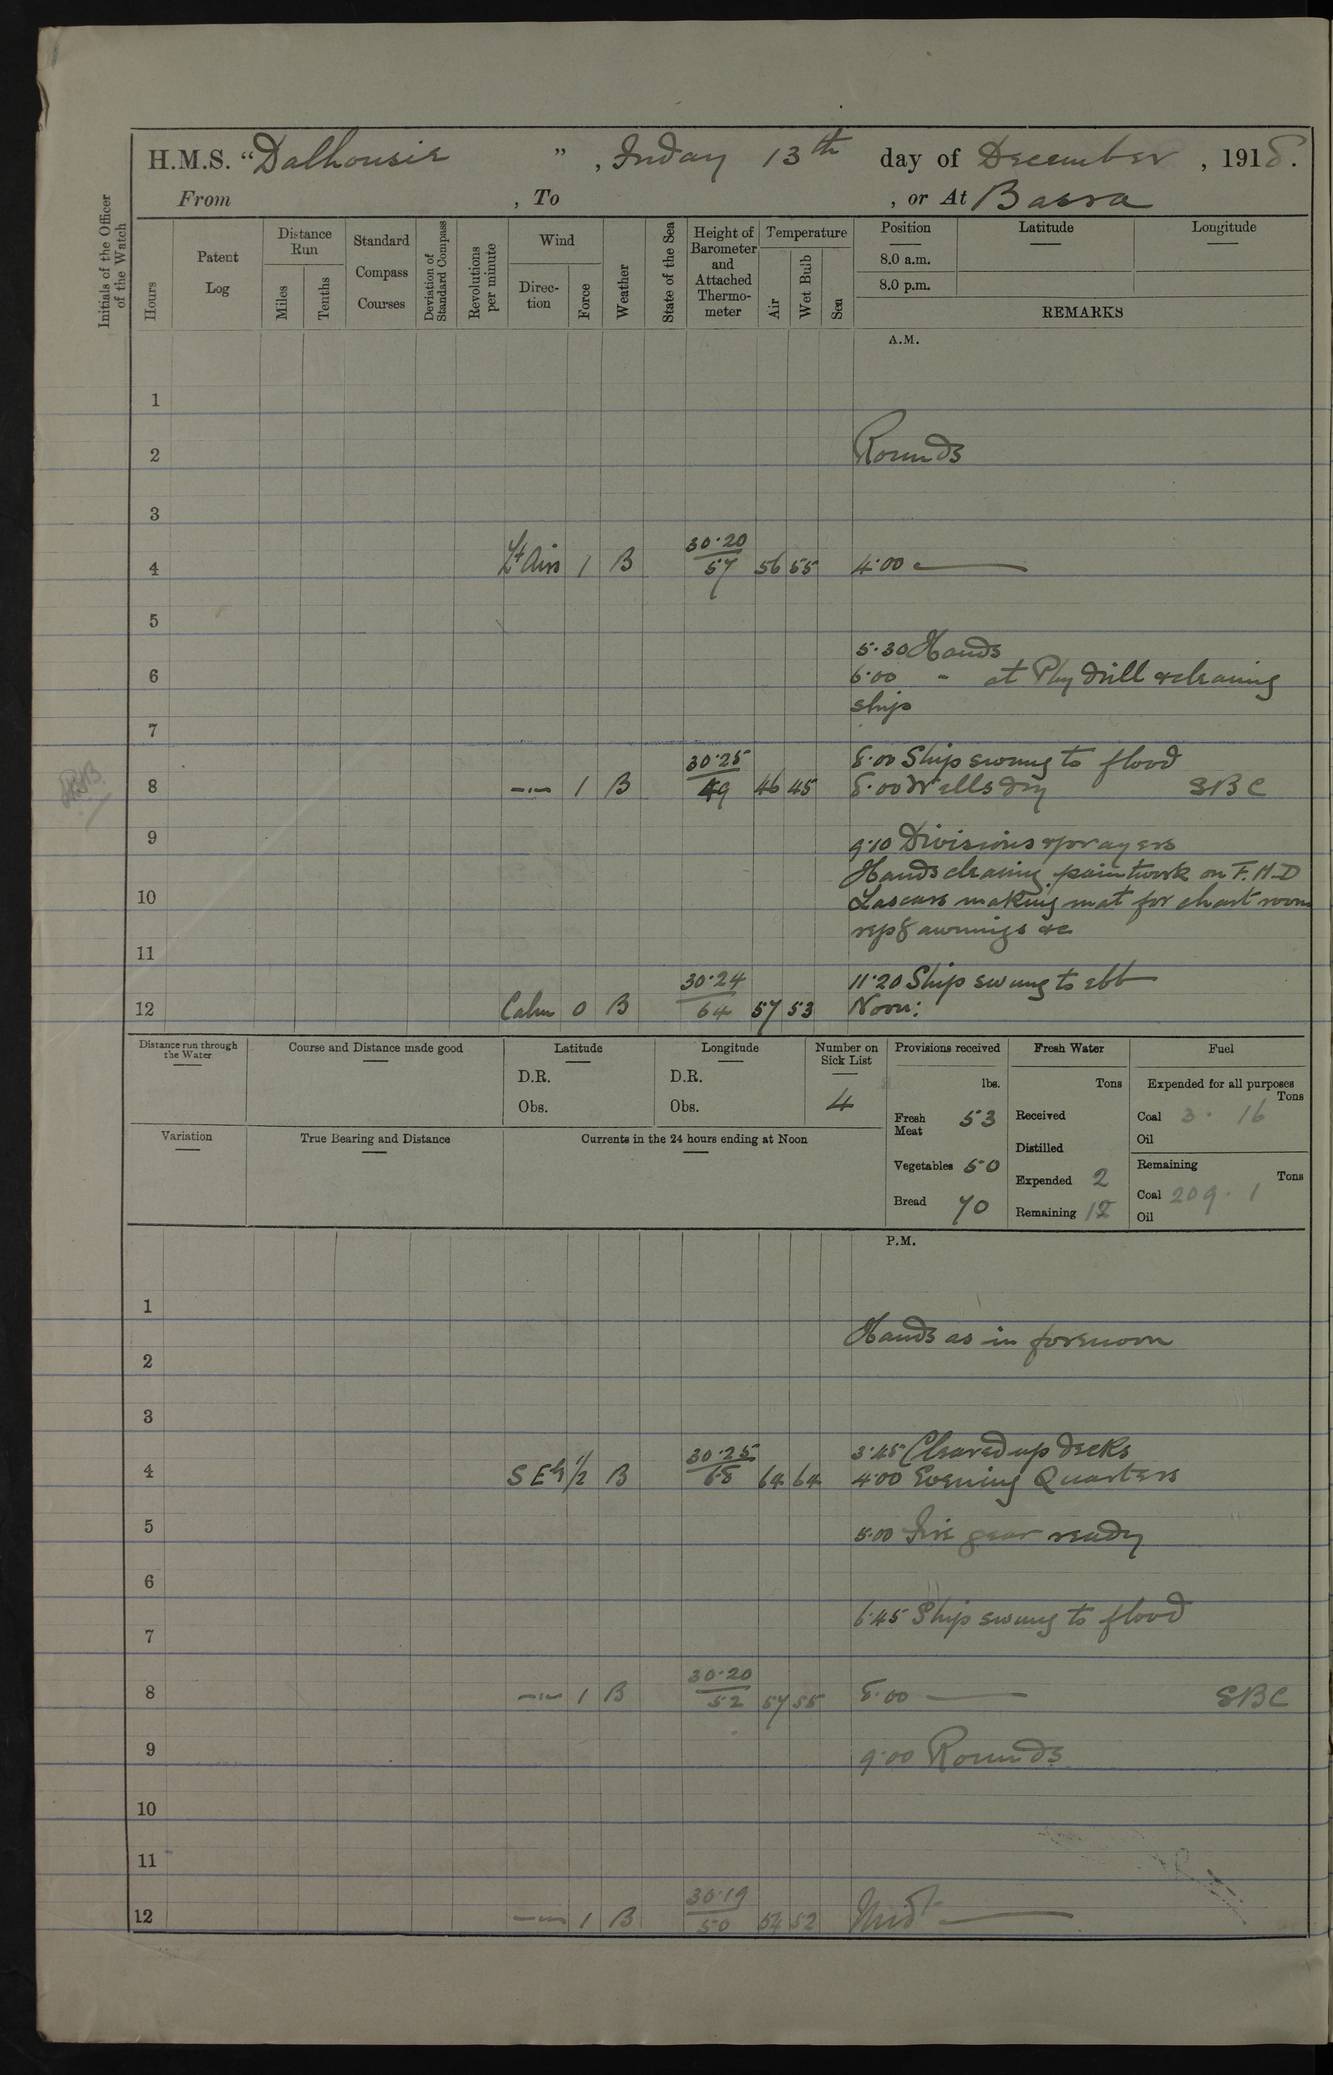 H.M.S. "Dalhousie", Friday 13th day of December, 1918.
From , To , or At Basra
Initials of the Officer of the Watch
Hours
Patent Log
Distance Run
Miles
Tenths
Standard Compass Courses
Deviation of Standard Compass
Revolutions per minute
Wind
Direction
Force
Weather
State of the Sea
Height of Barometer and Attached Thermometer
Temperature
Air
Wet Bulb
Sea
Position
Latitude
Longitude
8.0 a.m.
8.0 p.m.
REMARKS
A.M.
1
2 Rounds
3
4 Lt Airs 1 B 30.20 57 56 55 4.00 —
5
5.30 Hands
6 6.00 " at Phy drill & cleaning
ship
7
8.00 Ship swung to flood
8 —"— 1 B 30.25 49 46 45 8.00 Wells dry SBC
9 9.10 Divisions & prayers
Hands cleaning paintwork on F.M.D
10 Lascars making mat for chart room
repg awnings &c
11
11.20 Ship swung to ebb
12 Calm 0 B 30.24 64 57 53 Noon:
Distance run through the Water
Course and Distance made good
Latitude
D.R.
Obs.
Longitude
D.R.
Obs.
Number on Sick List
4
Provisions received
lbs.
Fresh Meat 53
Vegetables 50
Bread 70
Fresh Water
Tons
Received
Distilled
Expended 2
Remaining 12
Fuel
Expended for all purposes
Tons
Coal 3. 16
Oil
Remaining
Tons
Coal 209. 1
Oil
Variation
True Bearing and Distance
Currents in the 24 hours ending at Noon
P.M.
1
Hands as in forenoon
2
3
3.45 Cleared up decks
4 SEly 1/2 B 30.25 68 64 64 4.00 Evening Quarters
5 5.00 Fire gear ready
6
6.45 Ship swung to flood
7
8 —"— 1 B 30.20 52 57 55 8.00 — SBC
9 9.00 Rounds
10
11
12 —"— 1 B 30.19 50 54 52 Midt —